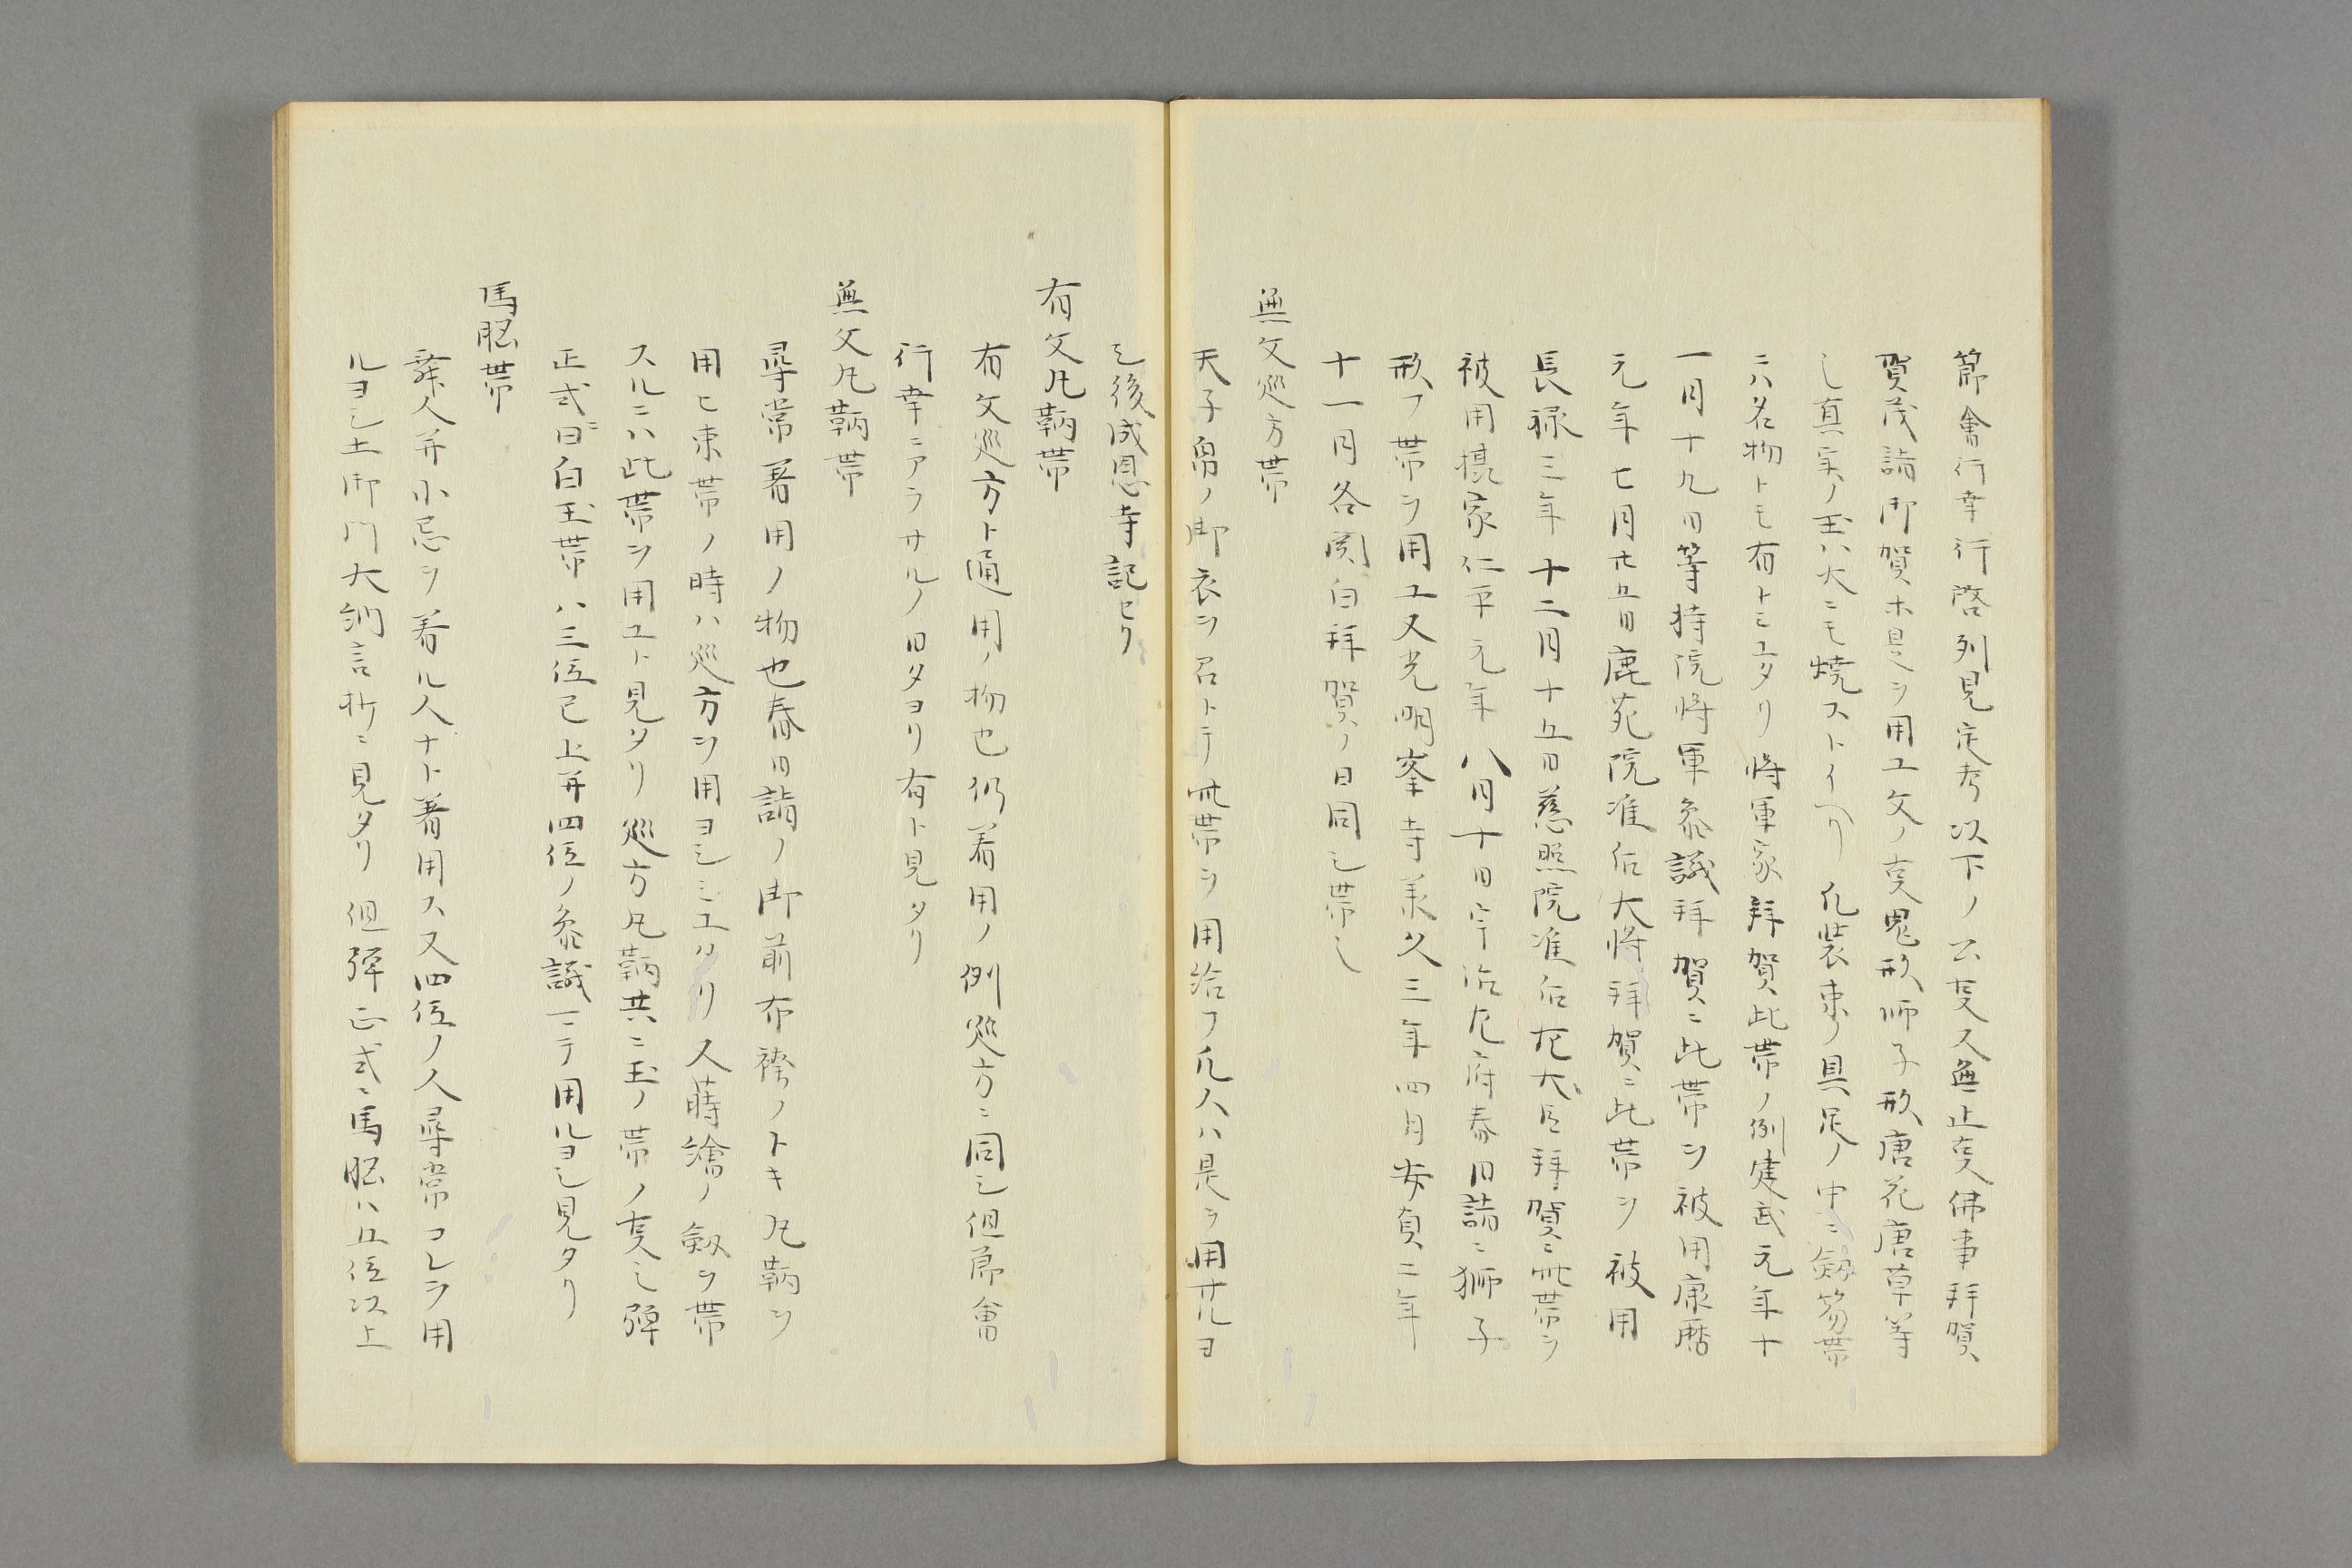 節會行幸行啓列見定考以下ノ公亊又無止亊佛事拜賀
賀茂詣御賀ホ是ヲ用ユ文ノ亊鬼形師子形唐花唐草等
シ真実ノ玉ハ大ニモ焼ストイヘリ凢装束ノ具足ノ中ニ劔笏帯
ニハ名物トモ有トミユタリ将軍家拜賀此帯ノ例建武元年十
一月十九日等持院将軍叅議拜賀ニ此帯ヲ被用康暦
元年七月廿五日鹿苑院准后大将拜賀ニ此帯ヲ被用
長禄三年十二月十五日慈照院准后左大臣拜賀ニ此帯ヲ
被用摂家仁平元年八月十日宇治左府春日詣ニ獅子
形ノ帯ヲ用ユ又光明峯寺承久三年四月安貞二年
十一月各関白拜賀ノ日同シ帯シ
無文巡方帯
天子帛ノ御衣ヲ召トテ此帯ヲ用給フ凢人ハ是ヲ用サルヨ
シ後成恩寺記セリ
有文丸鞆帯
有文巡方ト通用ノ物也仍着用ノ例巡方ニ同シ但節會
行幸ニアラサルノ日タヨリ有ト見タリ
無文丸鞆帯
尋常着用ノ物也春日詣ノ御前布袴ノトキ丸鞆ヲ
用ヒ束帯ノ時ハ巡方ヲ用ヨシミエタリ又蒔繪ノ劔ヲ帯
スルニハ此帯ヲ用ユト見タリ巡方丸鞆共ニ玉ノ帯ノ亊シ彈
正式ニ曰白玉帯ハ三位已上并四位ノ叅議ニテ用ルヨシ見タリ
馬脳帯
舞人并小忌ヲ着ル人ナト着用ス又四位ノ人尋常コレヲ用
ルヨシ土御門大納言抄ニ見タリ但彈正式ニ馬脳ハ五位以上